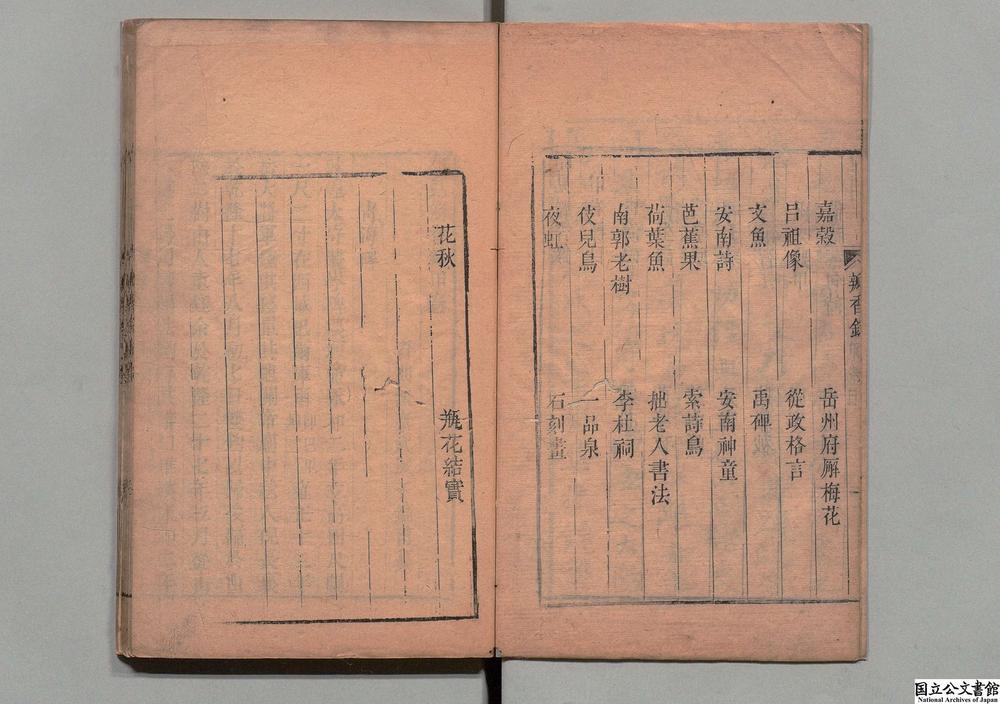 嘉穀　岳州府廨梅花
呂祖像　從政格言
文魚　禹碑
安南詩　安南神童
芭蕉果　索詩鳥
荷葉魚　拙老人書法
南郭老樹　李杜祠
伎兒鳥　一品泉
夜虹　石刻畫
花秋　瓶花結實
国立公文書館
National Archives of Japan